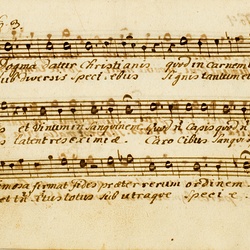 Dogma datur Christianis quod in Carnem
Sub diversis speciebus Signis tantum
et vinum in Sanguinem. Quod n̄ Capis quod
latent res eximiæ. Caro Cibus Sanguis
imosa firmat fides præter rerum ordinem
et tñ Xtus totus sub utraque specie.